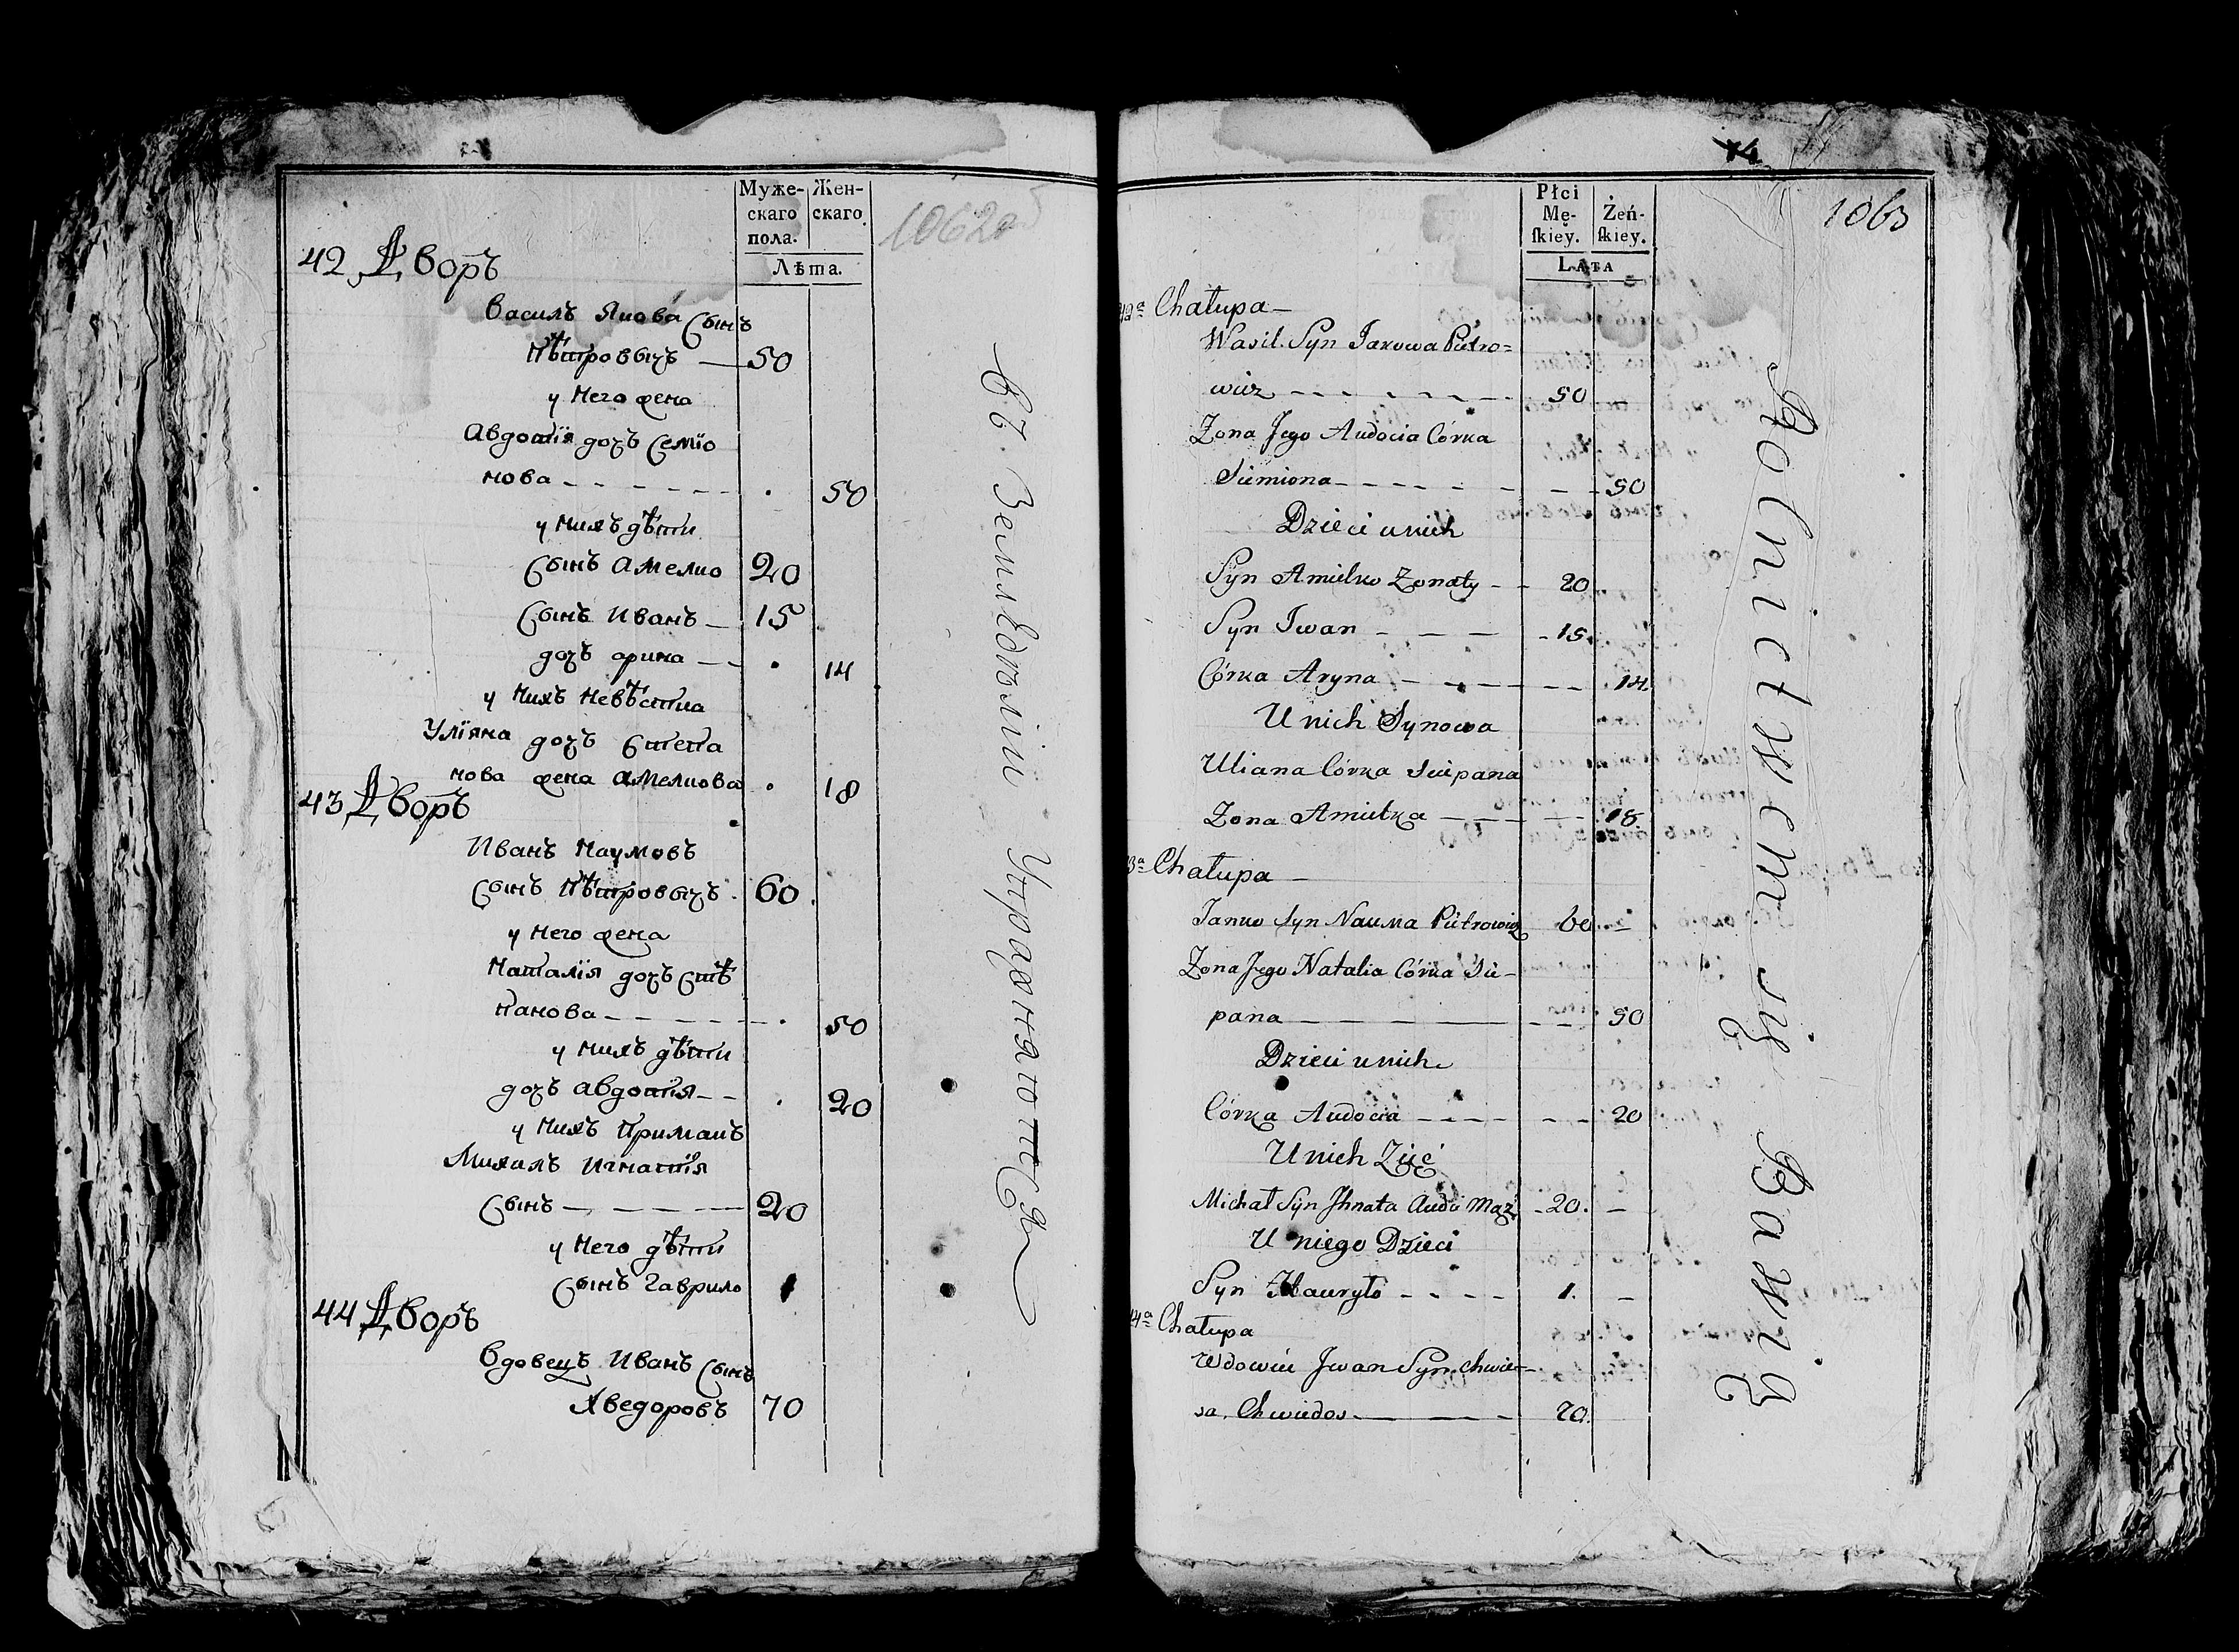 Муже-
скаго
пола.
Жен-
скаго
Лѣта.
1062об
42 Дворъ
Василь Якова Сынъ
Пѣтровичъ — 50
у него жена
Авдотія дочь Семіо
нова - - - - - . 50
у нихъ дѣти
Сынъ Амелко 20
Сынъ Иванъ — 15
дочь орина — - . 14
у нихъ невѣстка
Уліяна дочь Степа
нова жена Амелкова . 18
43 Дворъ
Иванъ Наумовъ
Сынъ Пѣтровичъ . 60
у него жена
Наталія дочь Стѣ
панова - - - - - . 50
у нихъ дѣти
дочь Авдотія - - . 20
у нихъ Примакъ
Михалъ Игнатія
Сынъ — - — - — 20
у него дѣти
Сынъ Гаврило 1
44 Дворъ
Вдовецъ Иванъ Сынъ
Хведоровъ 70
въ Земледѣліи Упражняются
14
1063
Płci
Mę-
ſkiey.
Żeń-
ſkiey.
LATA
42ª Chałupa —
Wasil Syn Jakowa Pietro=
wicz - - - - - - 50
Zona Jego Audocia Córka
Siemiona - - - - - - - 50
Dzieci u nich
Syn Amielko Zonaty - - 20
Syn Iwan - — — - 15
Córka Aryna - - - - - 14
U nich Synowa
Uliana Córka Sciepana
Zona Amiełka — — — — 18
43ª Chałupa —
Janko Syn Nauma Pietrowicz 60 -
Zona Jego Natalia Córka Scie-
pana — — — — - - - 50
Dzieci u nich
Córka Audocia - - - - - - 20
U nich Zięć
Michał Syn Jhnata Audo: Mąż - 20. -
U niego Dzieci
Syn Hauryło - - - - 1. -
44ª Chałupa
Wdowiec Jwan Syn Chwie-
sa, Chwiedos — — — — 70.
Rolnictwem się Bawią